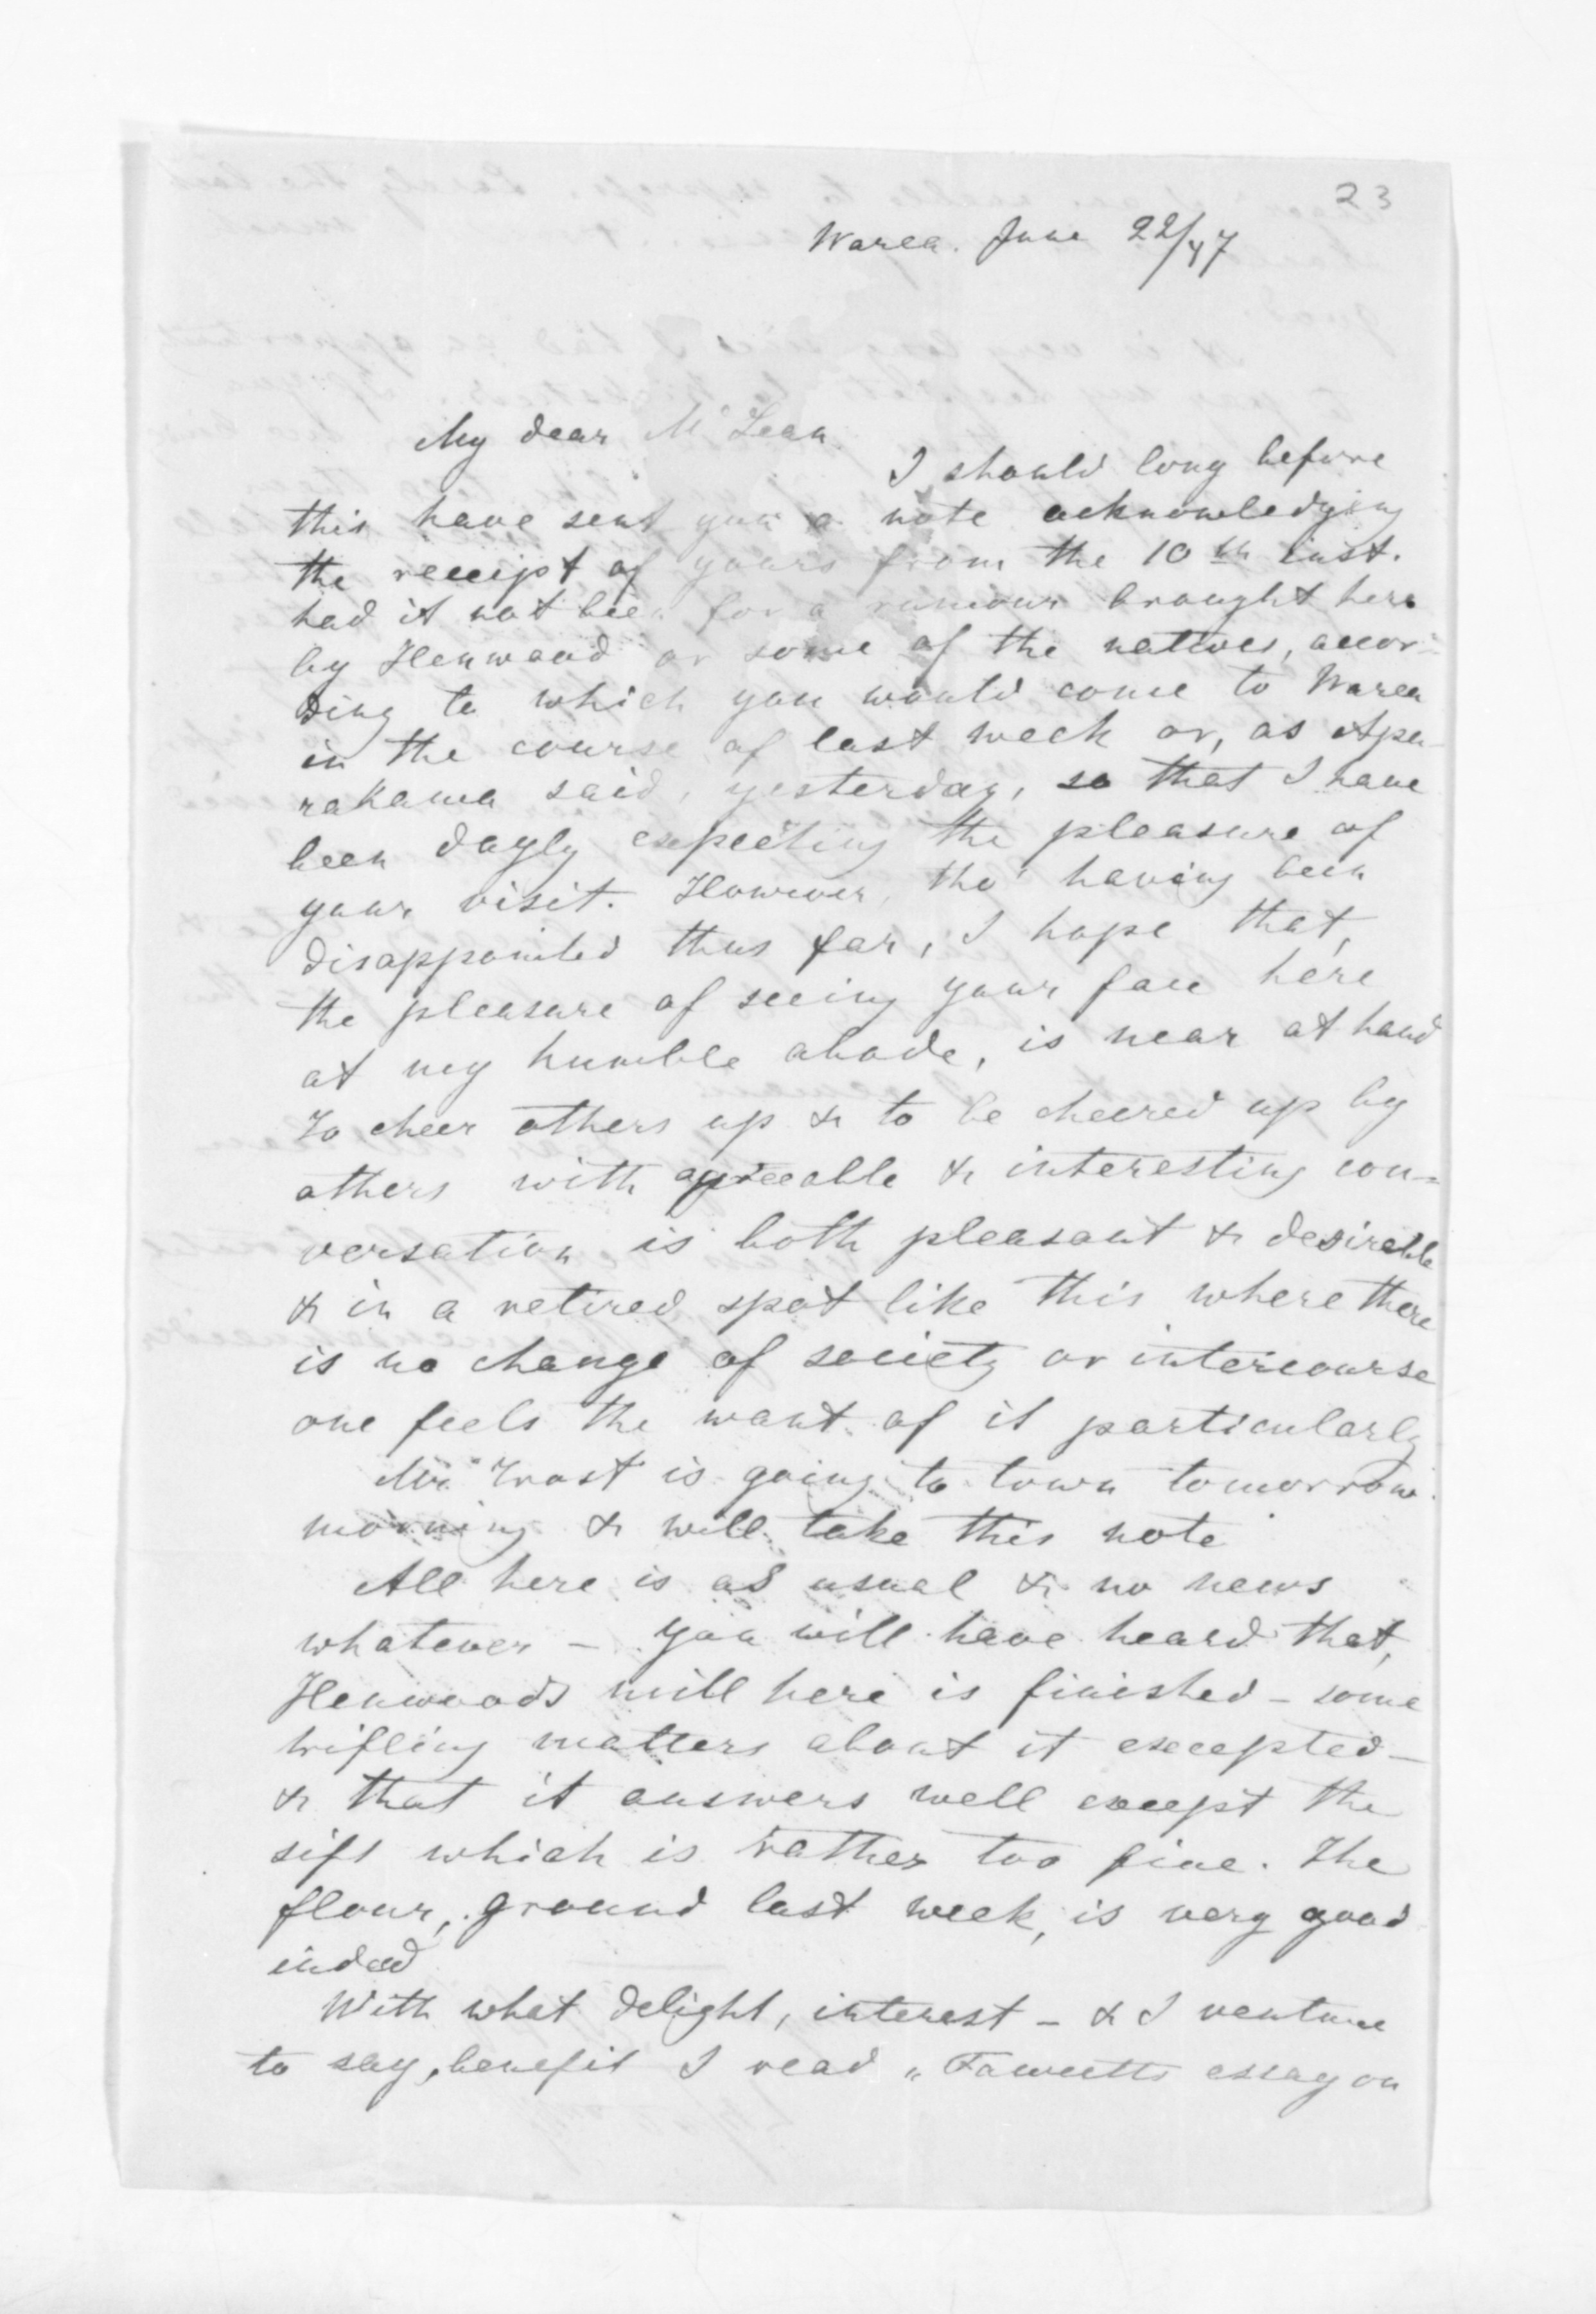 23
Warea. June 22/47
My dear McLean.
I should long before
this have sent you a note acknowledging
the receipt of yours from the 10th inst.
had it not been for a rumour brought here
by Henwood or some of the natives, accor-
ding to which you would come to Warea
in the course of last week or, as Apa-
rakama said, yesterday, so that I have
been dayly expecting the pleasure of
your visit. However, tho' having been
disappointed thus far, I hope that,
the pleasure of seeing your face here
at my humble abode, is near at hand
To cheer others up & to be cheered up by
others with agreeable & interesting con=
versation is both pleasant & desirable
& in a retired spot like this where there
is no change of society or intercourse
one feels the want of it particularly
Mr Trost is going to town tomorrow
morning & will take this note
All here is as usual & no news
whatever - you will have heard that,
Henwoods mill here is finished - some
trifling matters about it excepted -
& that it answers well except the
sift which is rather too fine. The
flour, ground last week, is very good
indeed
With what delight, interest - & I venture
to say, benefit I read „Fawcetts essay on